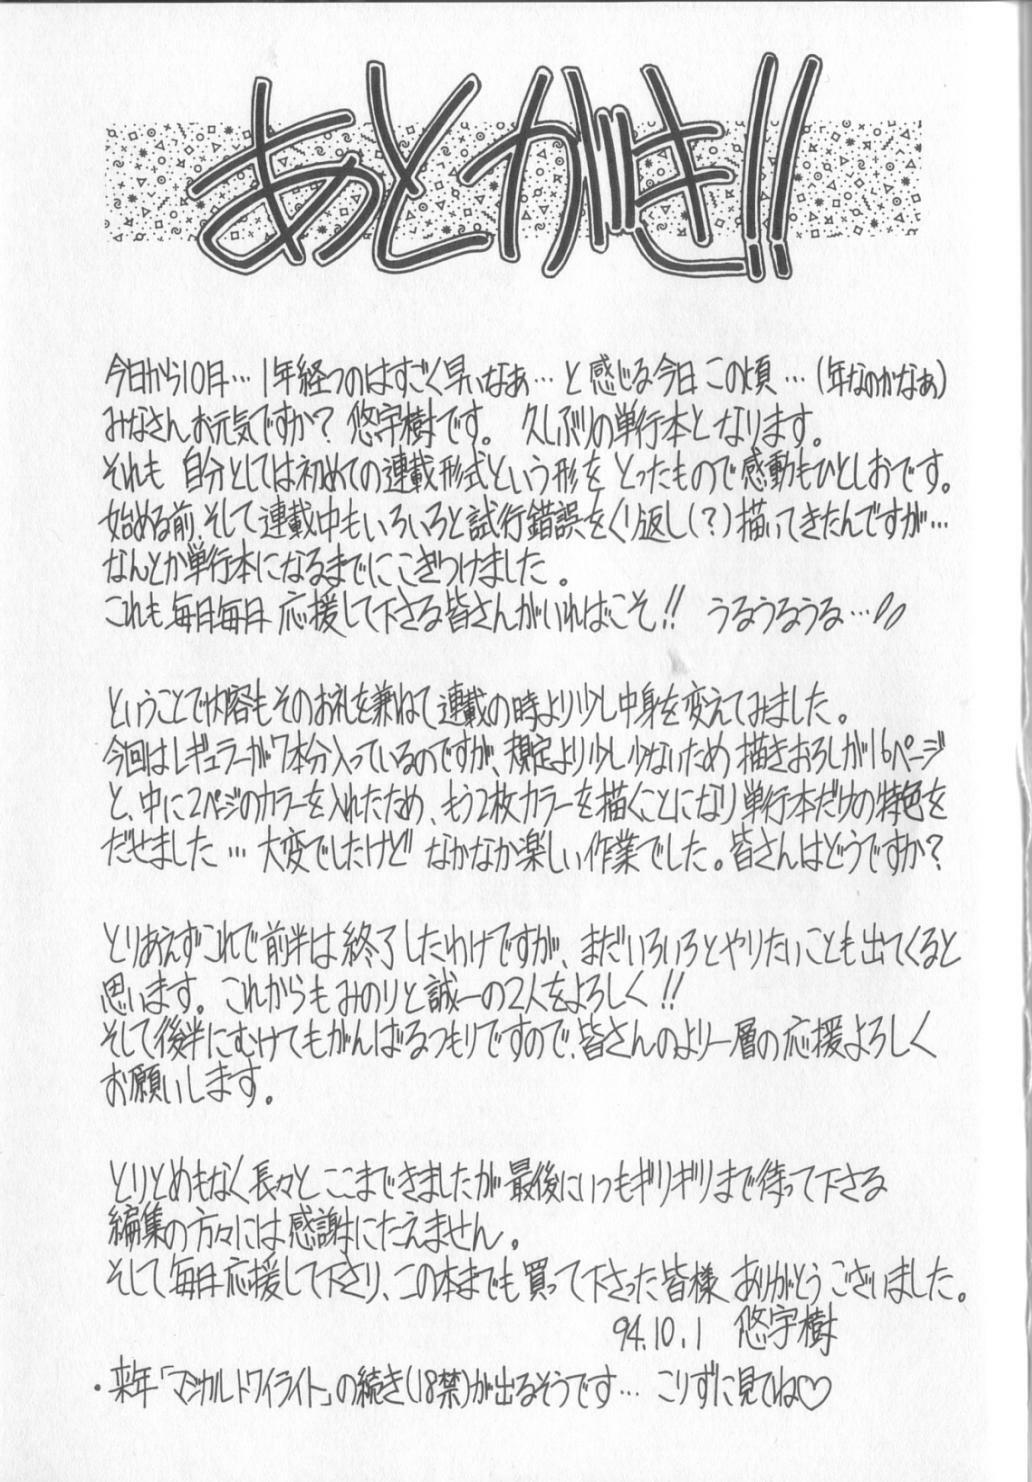 あとがき!!
今日から10月… 1年経つのはすごく早いなぁ… と 感じる今日 この頃 … (年なのかなぁ)
みなさんお元気ですか? 悠宇樹です。 久しぶりの単行本となります。
それも 自分としては初めての連載形式という形を とったもので感動もひとしおです。
始める前、そして連載中もいろいろと試行錯誤をくり返し(?)描いてきたんですが…
なんとか単行本になるまでにこぎつけました。
これも毎月毎月 応援して下さる皆さんがいればこそ!! うるうるうる…
ということで内容もそのお礼を兼ねて連載の時より少し中身を変えてみました。
今回はレギュラーが7本分入っているのですが、規定より少し少ないため 描きおろしが16ページ
と、中に2ページのカラーを入れたため、もう2枚カラーを描くことになり単行本だけの特色を
だせました … 大変でしたけど なかなか楽しい作業でした。皆さんはどうですか?
とりあえずこれで前半は終了したわけですが、まだいろいろとやりたいことも出てくると
思います。これからもみのりと誠一の2人をよろしく!!
そして後半にむけてもがんばるつもりですので、皆さんのより一層の応援よろしく
お願いします。
とりとめもなく長々とここまできましたが最後にいつもギリギリまで待って下さる
編集の方々には感謝にたえません。
そして毎月応援して下さり、この本までも買って下さった皆様 ありがとうございました。
94.10.1 悠宇樹
・来年「マジカルトワイライト」の続き(18禁)が出るそうです… こりずに見てね♡